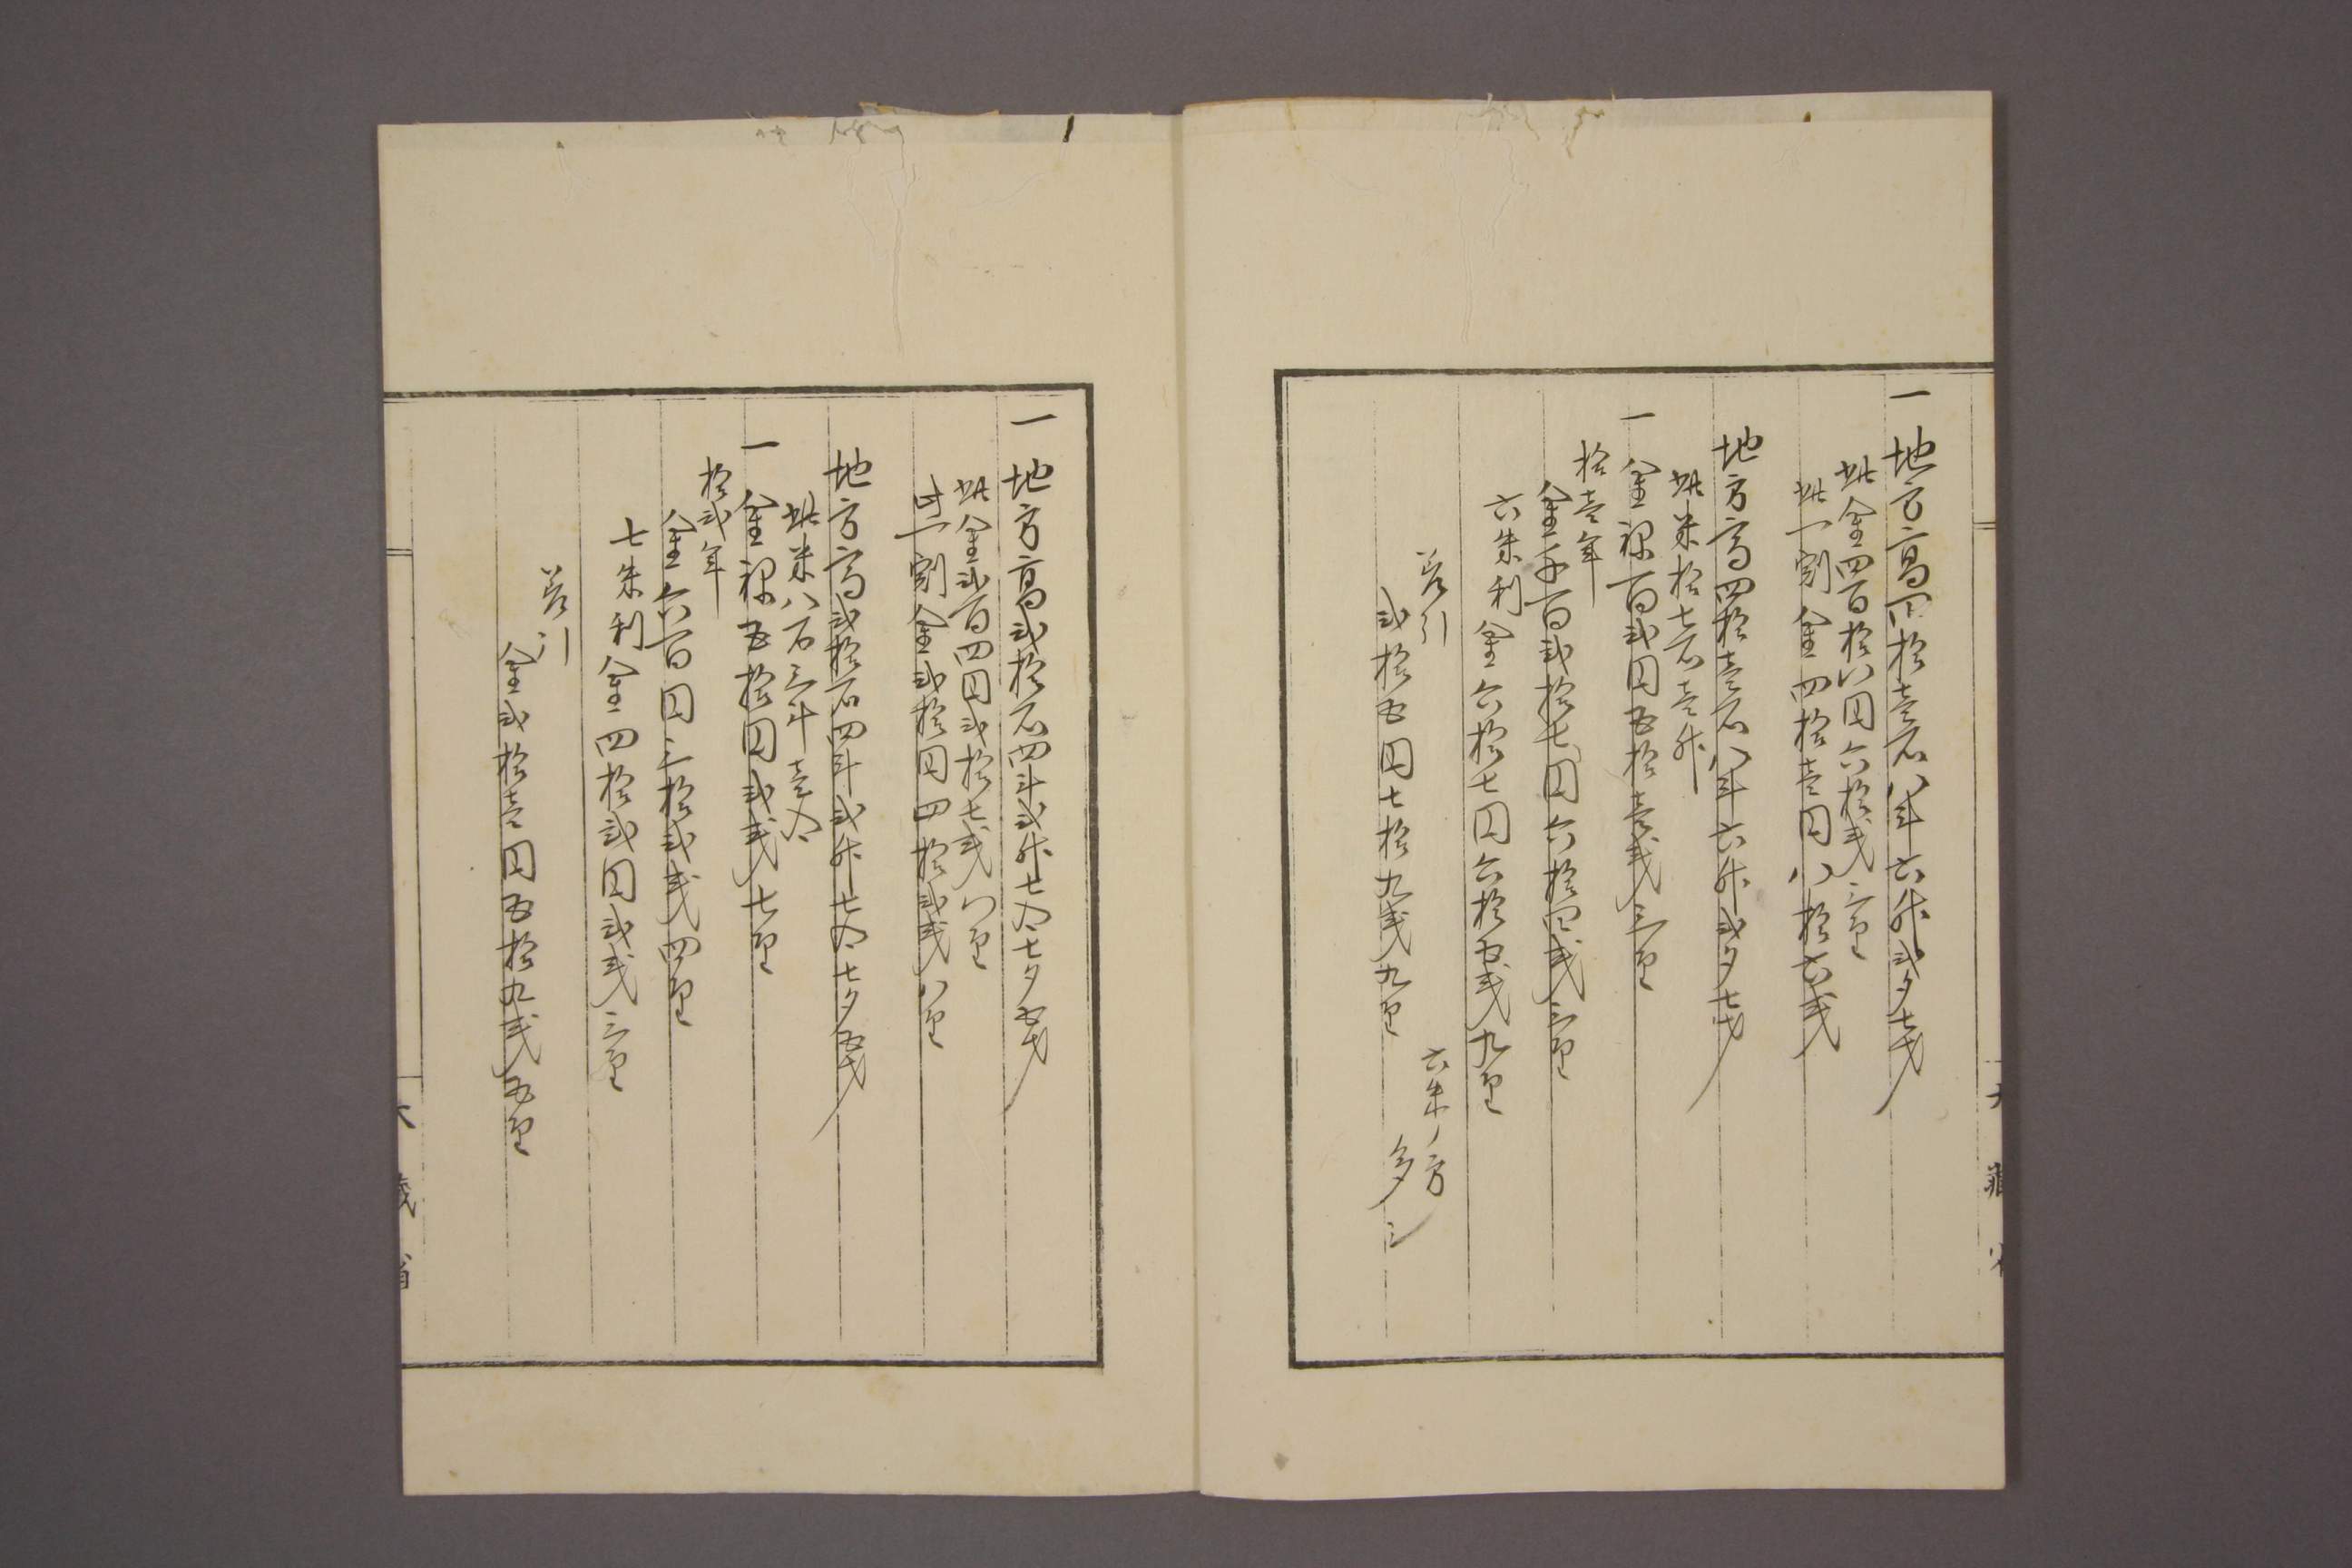 一 地方高四拾壱石八斗六升弐夕七才
此金四百拾八円六拾銭三厘
此一割金四拾壱円八拾六銭
地方高四拾壱石八斗六升弐夕七才
此米拾七石壱升
一 金禄百弐円五拾壱銭三厘
拾壱年
金千百弐拾七円六拾四銭三厘
六朱利金六拾七円六拾五銭九厘
差引
弐拾五円七拾九銭九厘
六朱ノ方
多シ
大藏省
一 地方高弐拾石四斗弐升七合七夕五才
此金弐百四円弐拾七銭八厘
此一割金弐拾円四拾弐銭八厘
地方高弐拾石四斗弐升七合七夕五才
此米八石三斗壱合
一 金禄五拾円弐銭七厘
拾弐年
金六百円三拾弐銭四厘
七朱利金四拾弐円弐銭三厘
差引
金弐拾壱円五拾九銭五厘
大藏省